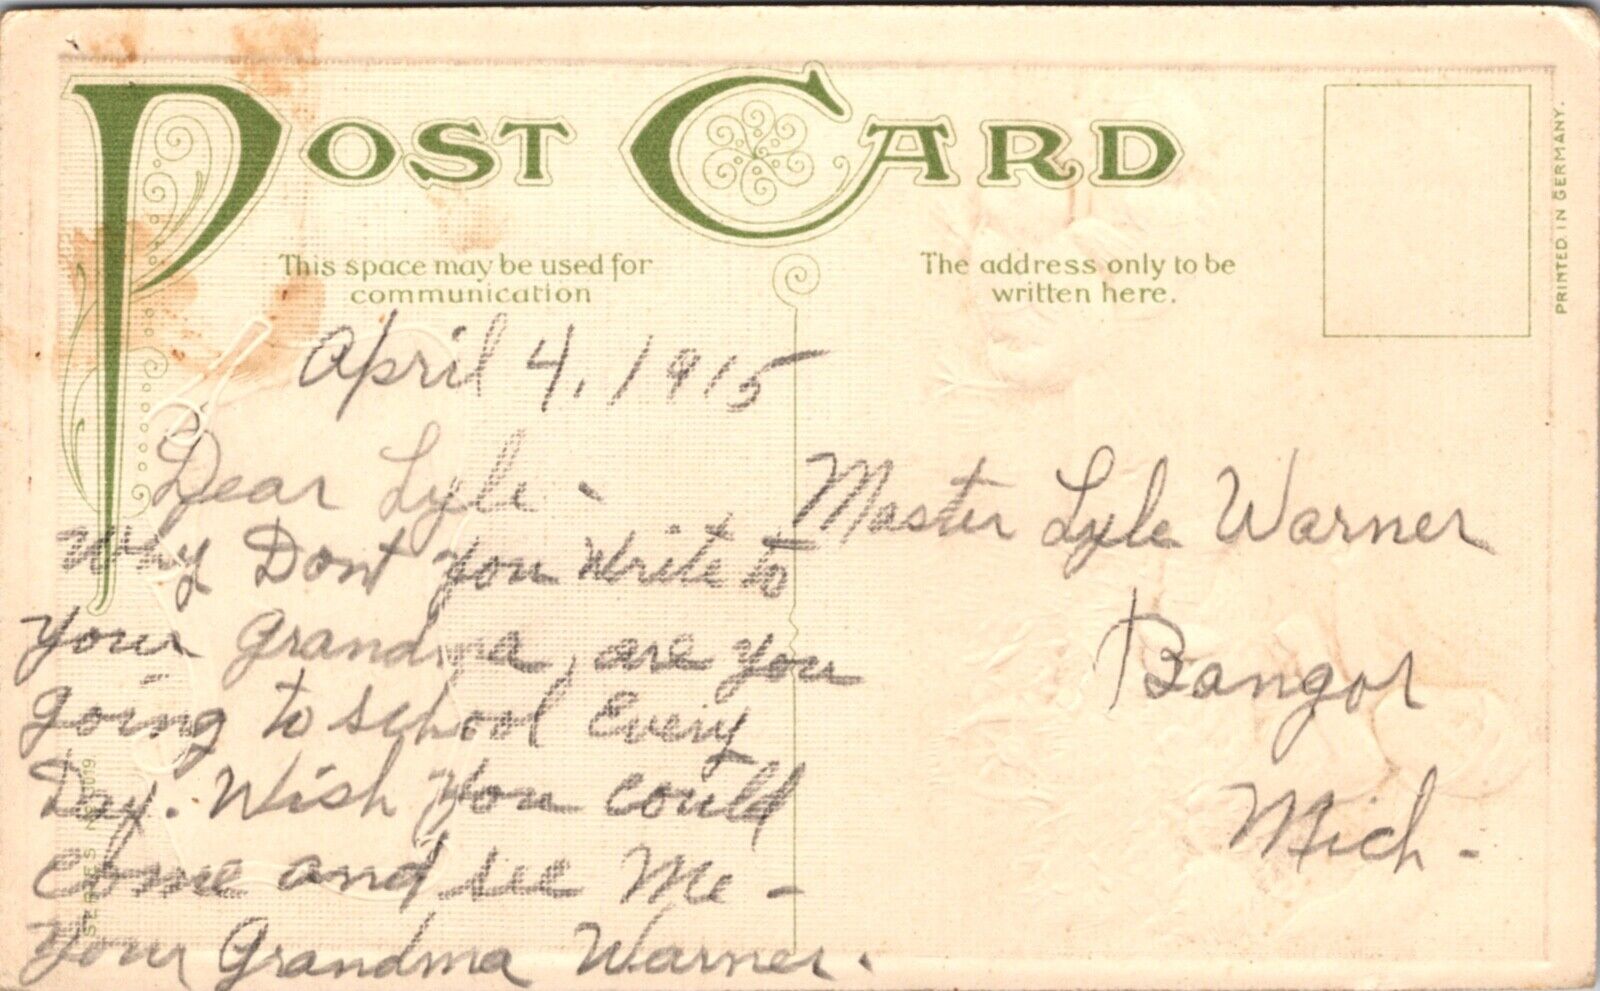 POST CARD
This space may be used for
communication
The address only to be
written here.
PRINTED IN GERMANY.
April 4, 1915
Dear Lyle -
Why Dont you Write to
your Grandma, are you
going to school Every
Day. Wish you could
come and see Me -
your Grandma Warner.
Master Lyle Warner
Bangor
Mich -